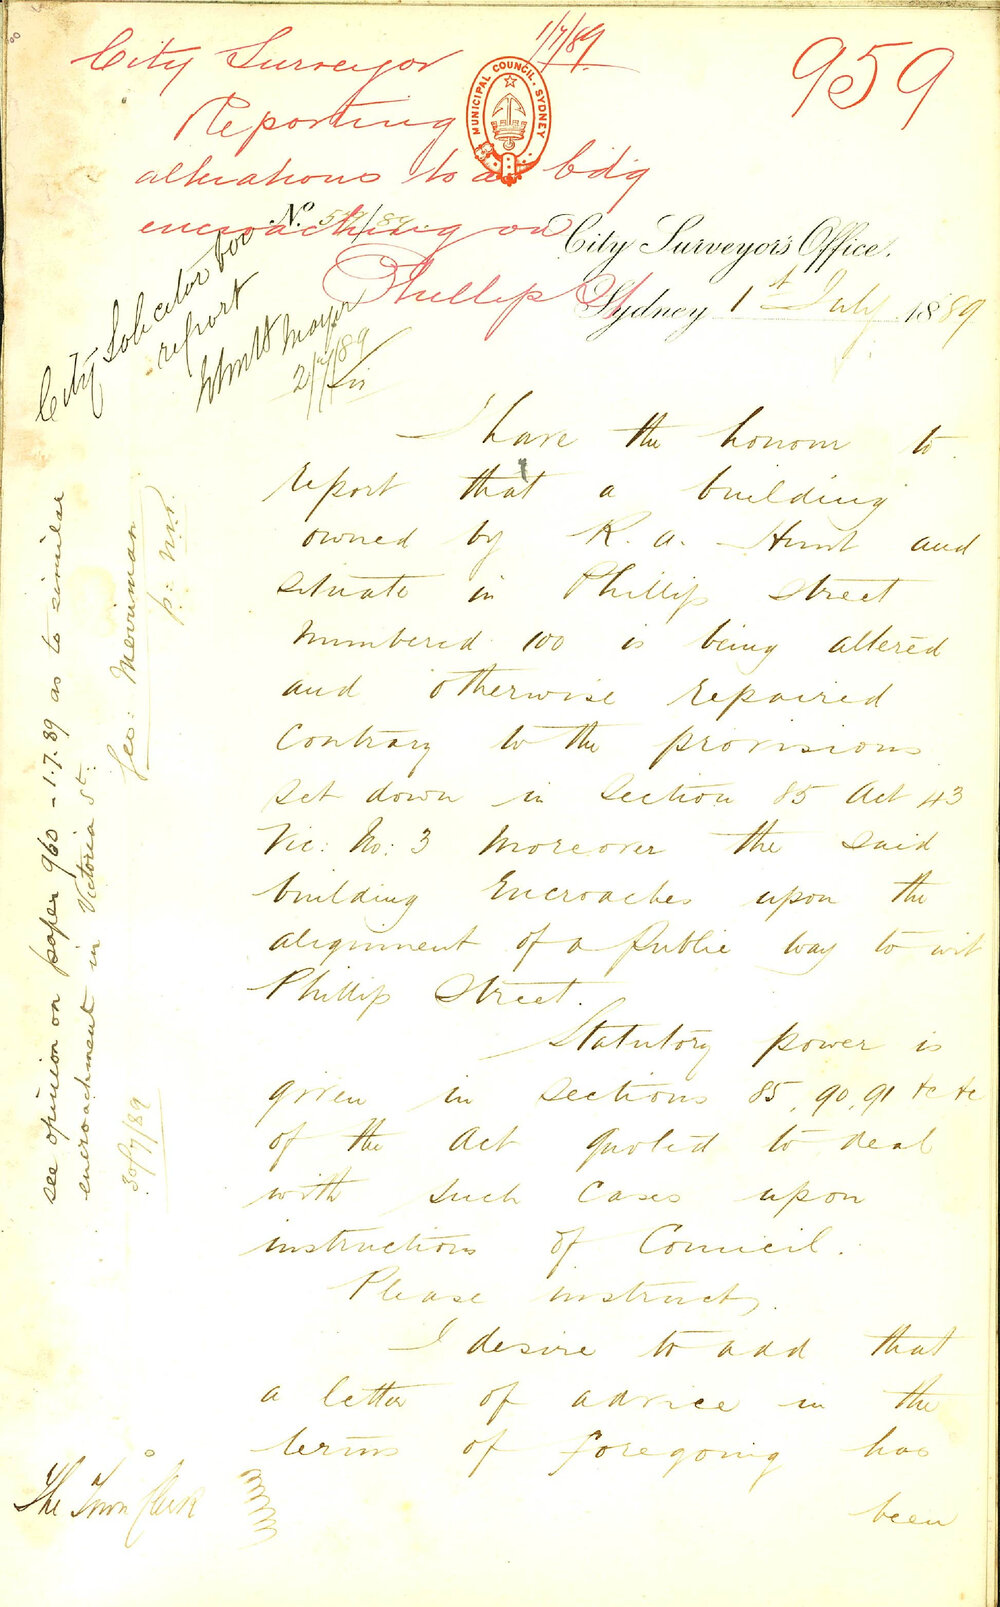 1/7/89
959
City Surveyor
Reporting
alterations to a bdg
encroaching on
Phillip St
MUNICIPAL COUNCIL. SYDNEY
No. /89
City Surveyor's Office.
Sydney 1st July 1889
City Solicitor too
report
Mayor
2/7/89
Sir
I have the honour to
report that a building
owned by R. A. Hunt and
situate in Phillip Street
numbered 100 is being altered
and otherwise repaired
contrary to the provisions
set down in Section 85 Act 43
Vic: No: 3 Moreover the said
building Encroaches upon the
alignment of a Public way to wit
Phillip Street.
Statutory power is
given in Sections 85, 90, 91 &c &c
of the Act quoted to deal
with such cases upon
instructions of Council.
Please instruct.
I desire to add that
a letter of advice in the
terms of foregoing has
been
The Town Clerk
see opinion on paper 960 - 1.7.89 as to similar
encroachment in Victoria St.
Geo: Merriman
30/7/89